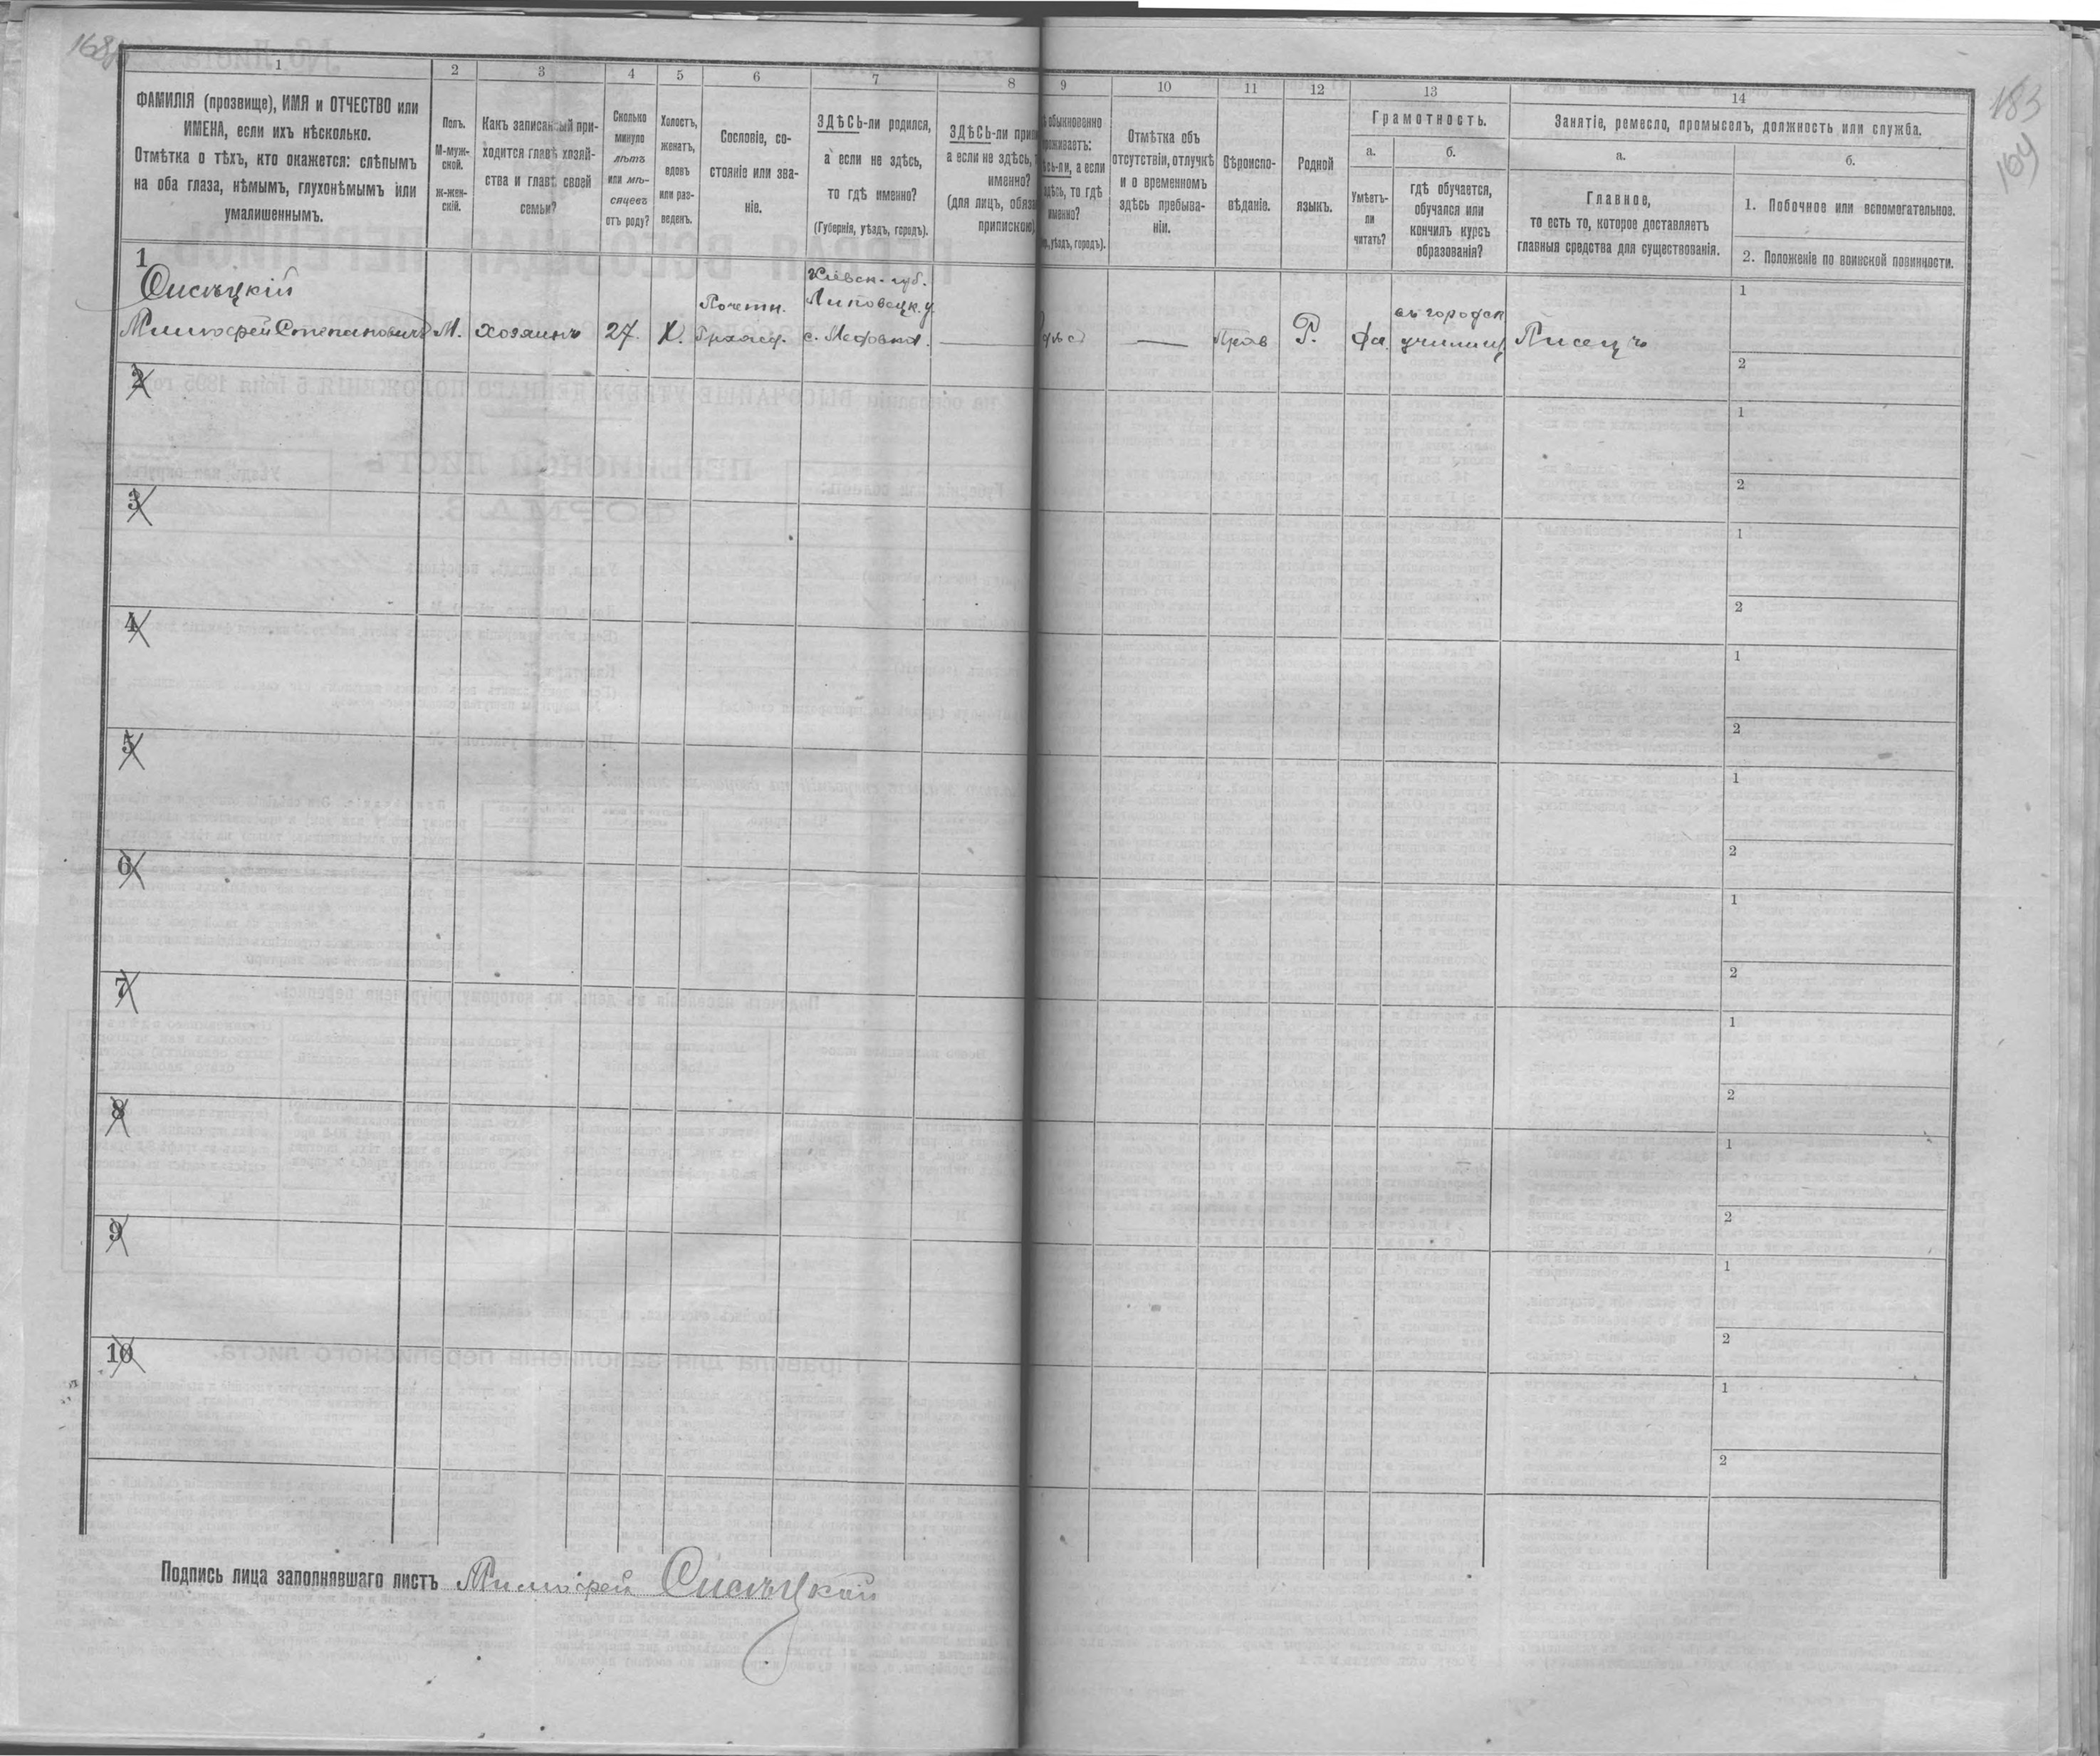 168об
183
164
1
2
3
4
5
6
7
8
9
10
11
12
13
14
ФАМИЛІЯ (прозвище), ИМЯ и ОТЧЕСТВО или
ИМЕНА, если ихъ нѣсколько.
Отмѣтка о тѣхъ, кто окажется: слѣпымъ
на оба глаза, нѣмымъ, глухонѣмымъ или
умалишеннымъ.
Полъ.
М-муж-
ской.
Ж-жен-
скій.
Какъ записанный при-
ходится главѣ хозяй-
ства и главѣ своей
семьи?
Сколько
минуло
лѣтъ
или мѣ-
сяцевъ
отъ роду?
Холостъ,
женатъ,
вдовъ
или раз-
веденъ.
Сословіе, со-
стояніе или зва-
ніе.
ЗДѢСЬ-ли родился,
а если не здѣсь,
то гдѣ именно?
(Губернія, уѣздъ, городъ).
ЗДѢСЬ-ли
а если не здѣсь,
именно?
(для лицъ,
припискою)
обыкновенно
а если
то гдѣ
именно?
уѣздъ, городъ).
Отмѣтка объ
отсутствіи, отлучкѣ
и о временномъ
здѣсь пребыва-
ніи.
Вѣроиспо-
вѣданіе.
Родной
языкъ.
Грамотность.
а.
Умѣетъ-
ли
читать?
б.
гдѣ обучается,
обучался или
кончилъ курсъ
образованія?
Занятіе, ремесло, промыселъ, должность или служба.
а.
Главное,
то есть то, которое доставляетъ
главныя средства для существованія.
б.
1. Побочное или вспомогательное.
2. Положеніе по воинской повинности.
1
Степановичъ М. Хозяинъ 27. Х. Почетн. Гражд. Кіевск. губ. Липовецк. у. — — Прав Р. Да въ городск училищ Писецъ
1
2
2
1
2
3
1
2
4
1
2
5
1
2
6
1
2
7
1
2
8
1
2
9
1
2
10
1
2
Подпись лица заполнявшаго листъ